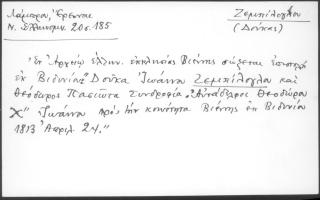 Λάμπρου, Έρευναι
Ν. Ελληνομν. 20 σ. 185
Ζεμπίλογλου
(Δούκας)
"Εν Αρχείω ελλην. εκκλησίας Βιέννης σώζεται επιστολή
εκ Βιδινίου "Δούκα Ιωάννου Ζεμπίλογλα και
Θεόδωρος Πασιώτα Συνδροφία. Αυτάδελφος Θεοδώρου
Χ" Ιωάννου προς την κοινότητα Βιέννης εκ Βιδινίου
1813 Απριλ. 24."